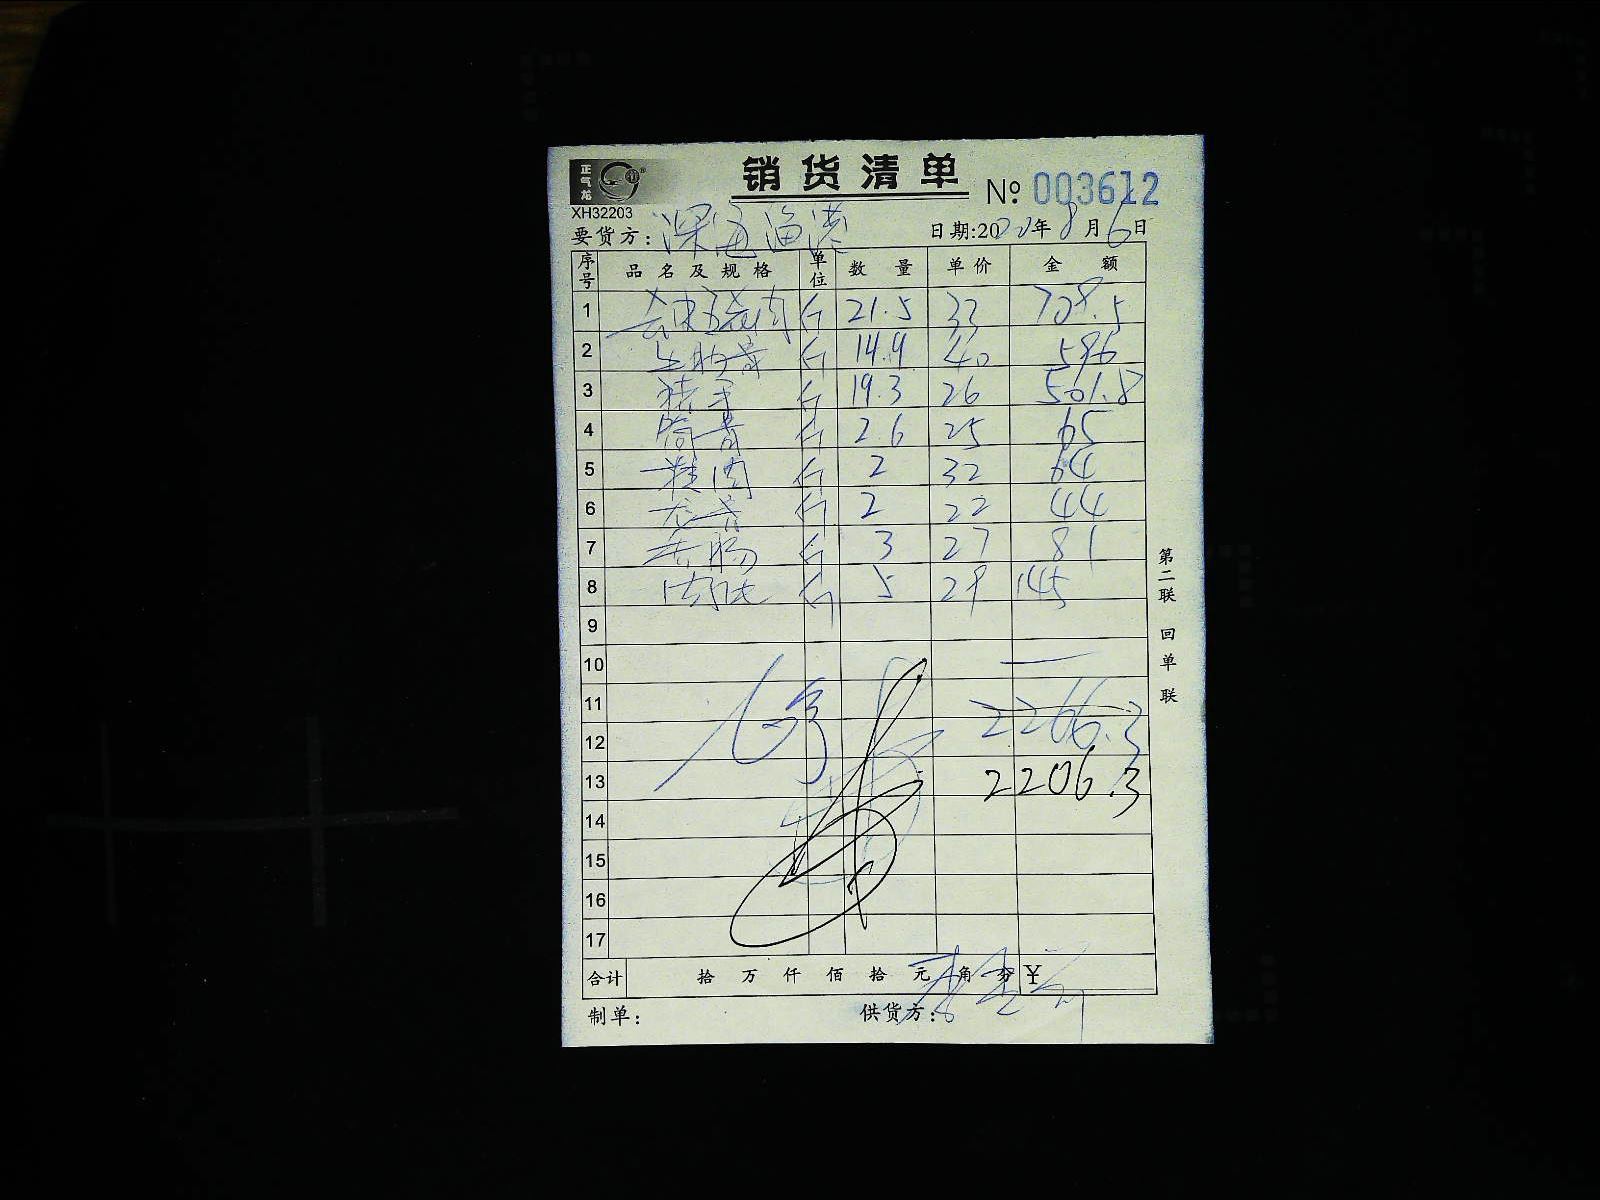 正气龙
销货清单
XH32203
№ 003612
要货方: 深海渔港 日期:20 年8月6日
序号 品名及规格 单位 数量 单价 金额
1 去皮五花肉 斤 21.5 33 708.5
2 斤 14.9 40 596
3 猪手 斤 19.3 26 501.8
4 筒骨 斤 2.6 25 65
5 精肉 斤 2 32 64
6 龙骨 斤 2 22 44
7 斤 3 27 81
8 斤 5 29 145
9
10
11 2266.3
12
13 2206.3
14
15
16
17
合计 拾 万 仟 佰 拾 元 角 分 ¥
制单: 供货方:
第二联 回单联